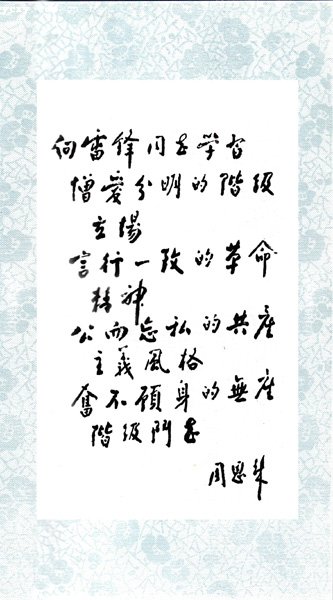 向雷锋同志学習
憎愛分明的階級
立場
言行一致的革命
精神
公而忘私的共產
主義風格
奮不顧身的無產
階級鬥志
周恩来